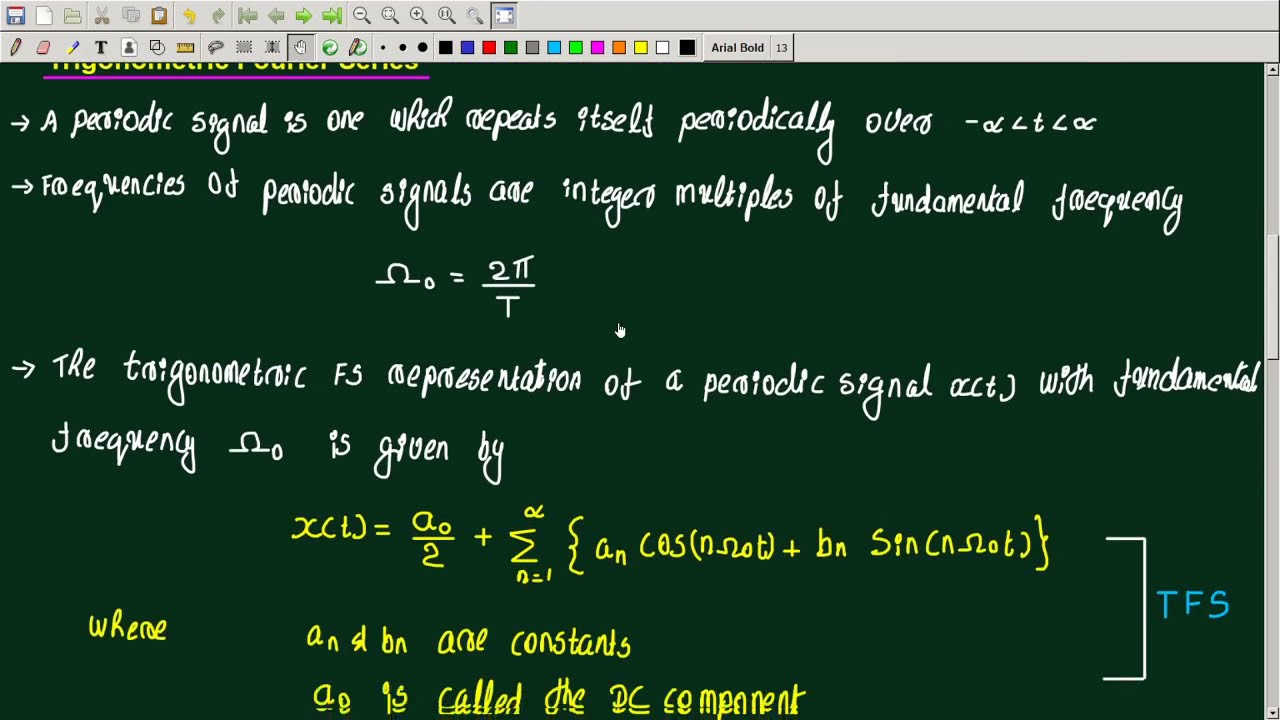 Arial Bold 13
Trigonometric Fourier Series
→ A periodic signal is one which repeats itself periodically over -α < t < α
→ Frequencies of periodic signals are integer multiples of fundamental frequency
Ω₀ = 2π/T
→ The trigonometric FS representation of a periodic signal x(t) with fundamental
frequency Ω₀ is given by
x(t) = a₀/2 + ∑_{n=1}^{α} { aₙ cos(nΩ₀t) + bₙ sin(nΩ₀t) }
TFS
where aₙ & bₙ are constants
a₀ is called the DC component